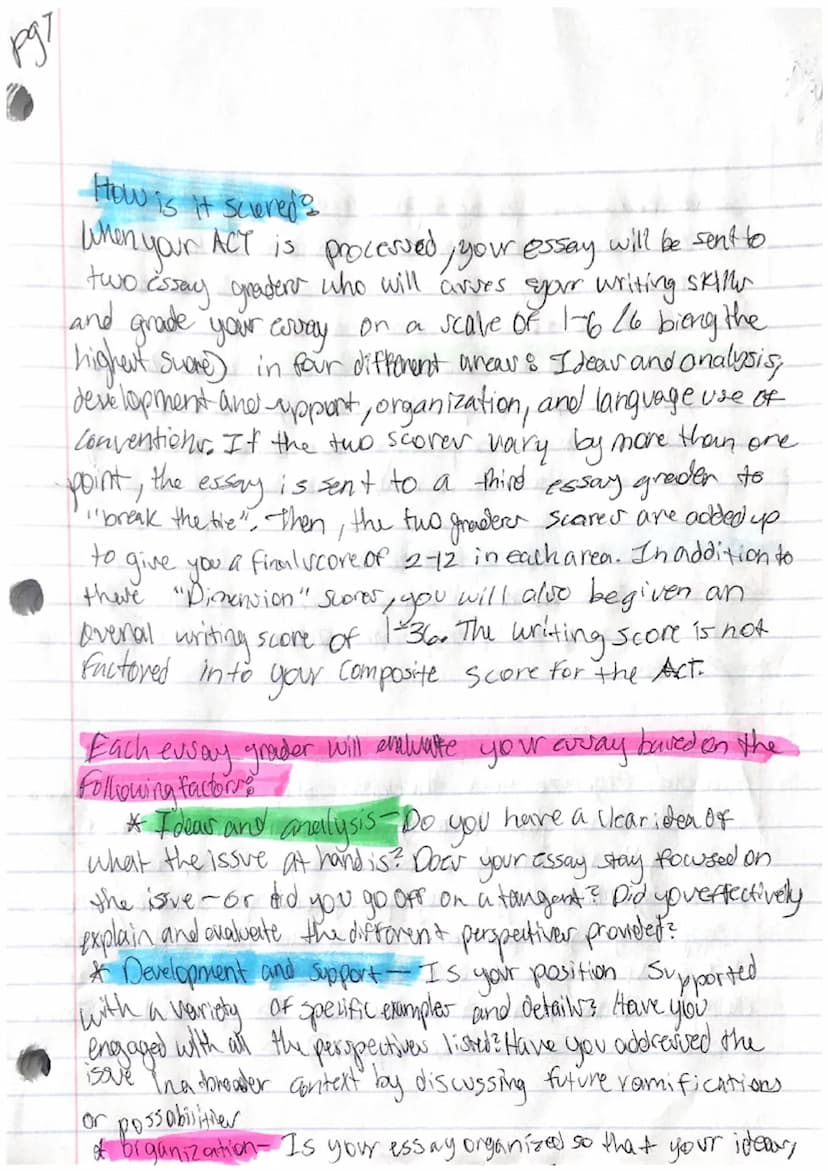 pg7
How is it scored?
When your ACT is processed, your essay will be sent to
two essay graders who will asses your writing skills
and grade your essay on a scale of 1-6 (6 bieng the
highest score) in four different areas: Ideas and analysis,
development and support, organization, and language use of
conventions. If the two scores vary by more than one
point, the essay is sent to a third essay grader to
"break the tie". Then, the two graders scores are added up
to give you a final score of 2-12 in each area. In addition to
these "Dimension" scores, you will also be given an
overall writing score of 1-36. The writing score is not
factored into your composite score for the ACT.
Each essay grader will evaluate your essay based on the
following factors:
* Ideas and anallysis- Do you have a clear idea of
what the issue at hand is? Does your essay stay focused on
the issue - or did you go off on a tangent? Did you effectively
explain and evaluate the different perspectives provided?
* Development and support - Is your position supported
with a variety of specific examples and details? Have you
engaged with all the perspectives listed? Have you addressed the
issue in a broader context by discussing future ramifications
or possabilities
* Organization- Is your essay organized so that your ideas,